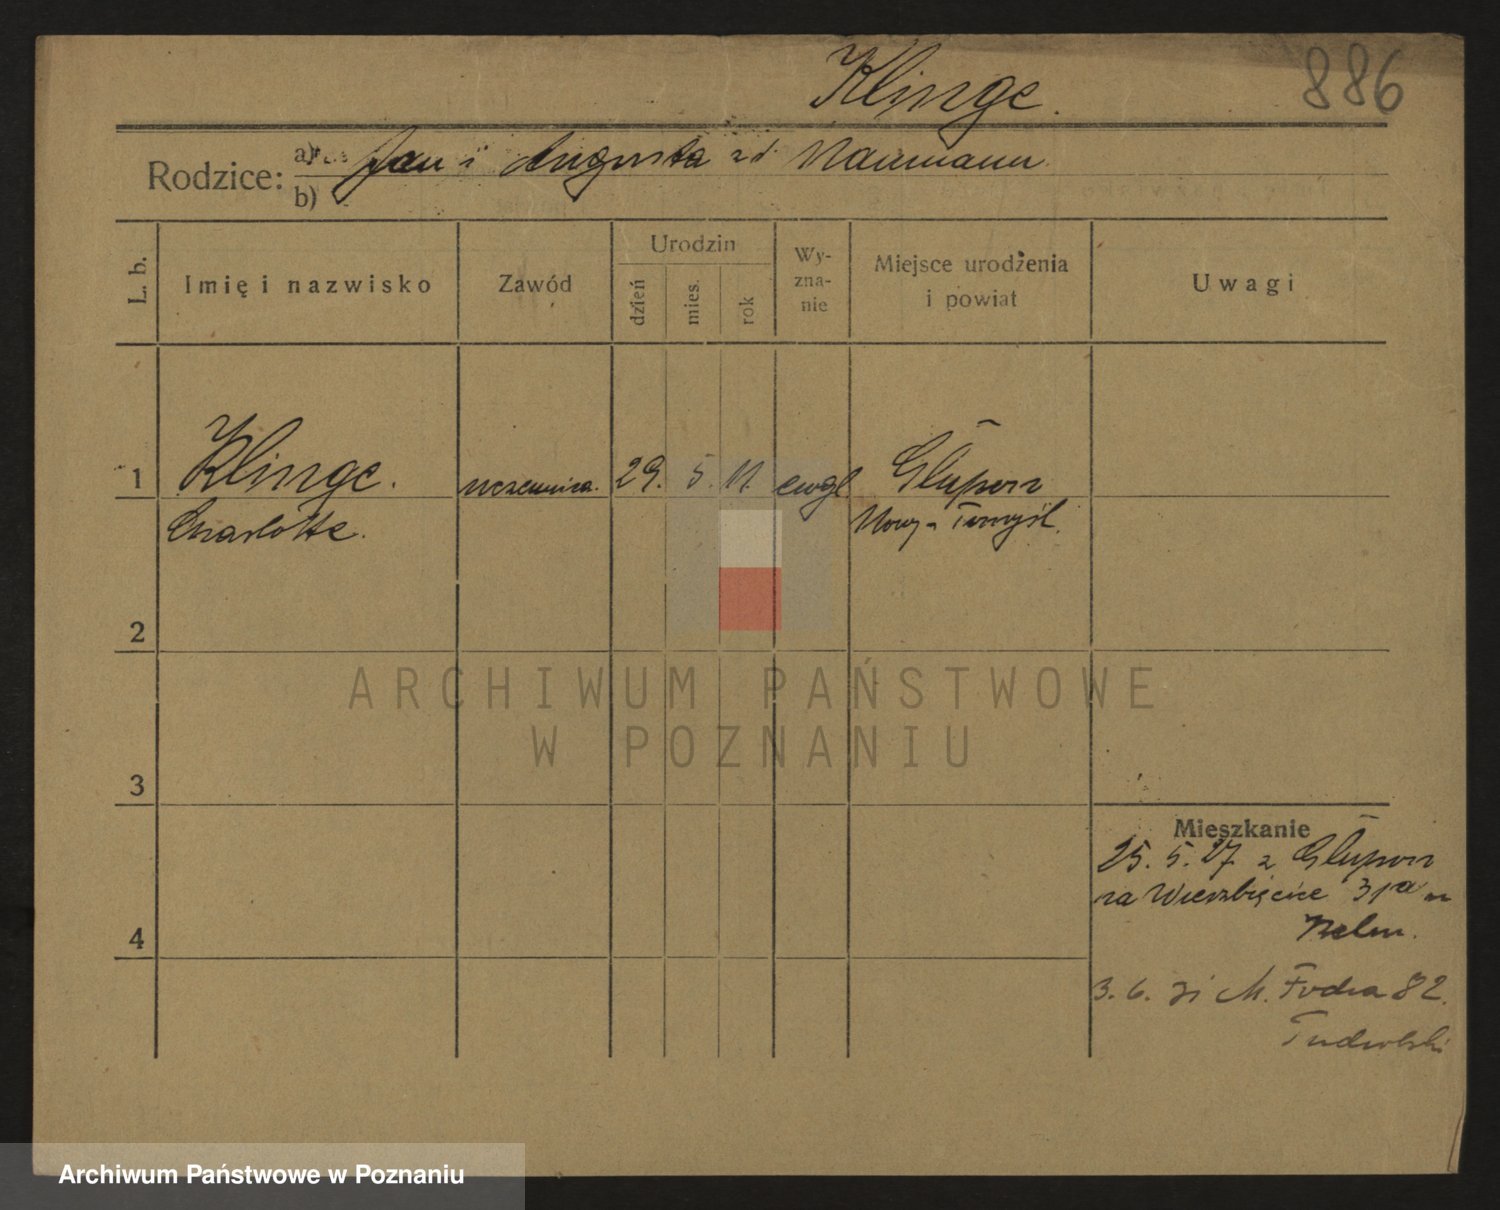 Klinge.
886
Rodzice: a) Jan i Augusta zd Naumann.
b)
L. b.
Imię i nazwisko
Zawód
Urodzin
dzień
mies.
rok
Wy-
zna-
nie
Miejsce urodzenia
i powiat
Uwagi
1
Klinge.
Charlotte.
uczennica.
29. 5. 11.
ewgl
Głupon
Nowy-Tomyśl.
2
3
4
Mieszkanie
25. 5. 27 z Głupon
na Wierzbięcice 31a
3. 6. M. Focha 82.
ARCHIWUM PAŃSTWOWE
W POZNANIU
Archiwum Państwowe w Poznaniu